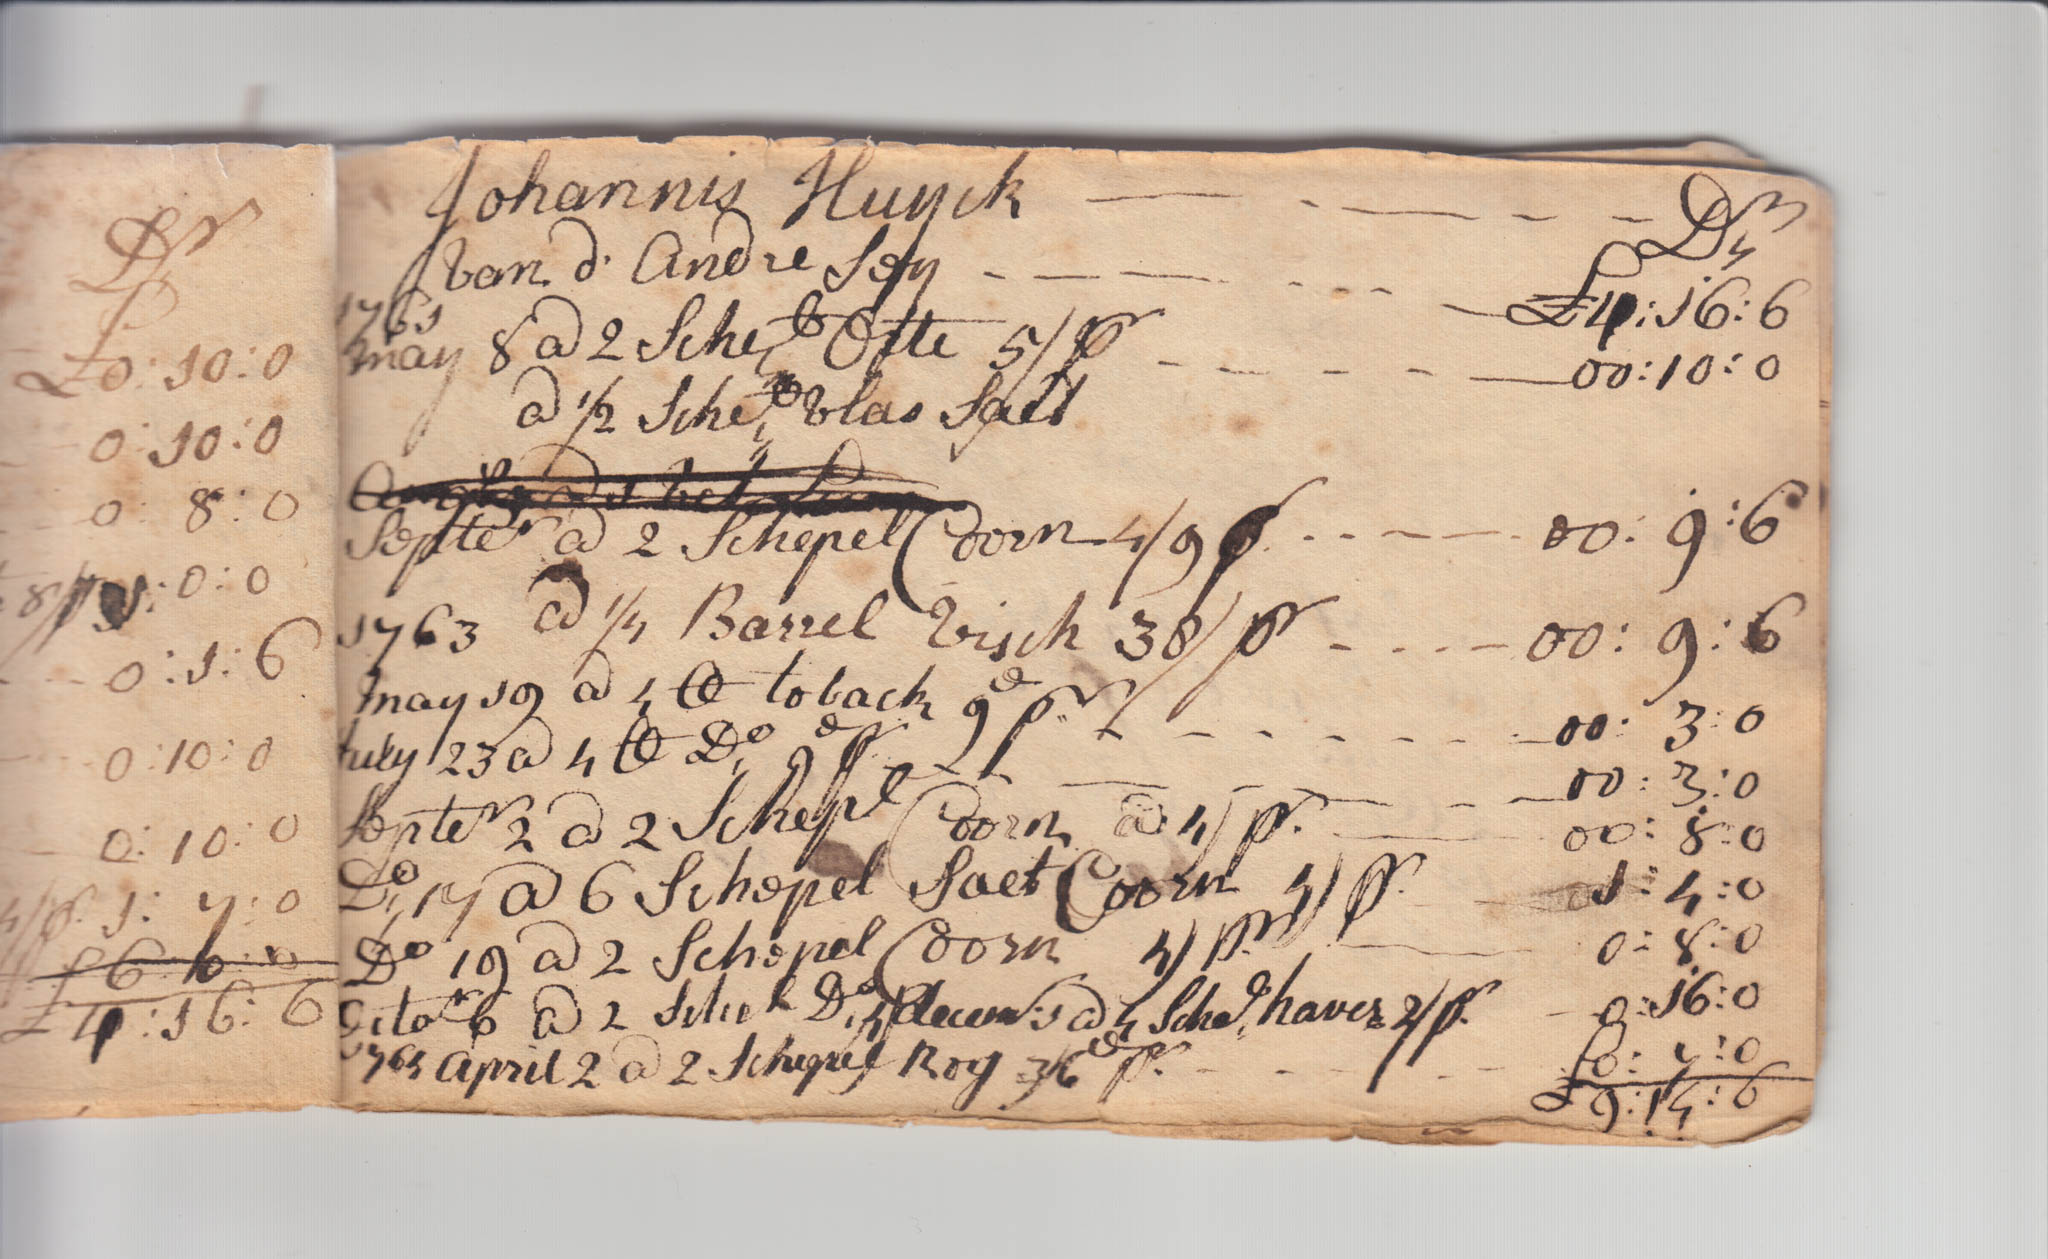 Dr
£
£0:10:0
0:10:0
0:8:0
8/p 1:0:0
0:1:6
0:10:0
0:10:0
4/p. 1:7:0
£6:6:0
£4:16:6
Johannis Huyck Dr
van d' Andre Sey £4:16:6
1761
may 8 a 2 Schepl Otte 5/p 00:10:0
a 1/2 Schepl vlas Saet
Septer a 2 Schepel Coorn 4/9 p 00:9:6
1763 a 1/4 Barrel visch 38/p 00:9:6
may 19 a 4 lb toback 9d p 00:3:0
July 23 a 4 lb Do 9d p 00:3:0
Septer 2 a 2 Schepl Coorn a 4/p. 00:8:0
Do 17 a 6 Schepel Saet Coorn 4/p. 1:4:0
Do 19 a 2 Schepel Coorn 4/p. 0:8:0
octor 6 a 2 Schel Do 4/ decem 1 a 4 Schel haver 2/p. 0:16:0
1764 april 2 a 2 Schepel Rog 3/6d p. £0:7:0
£9:14:6